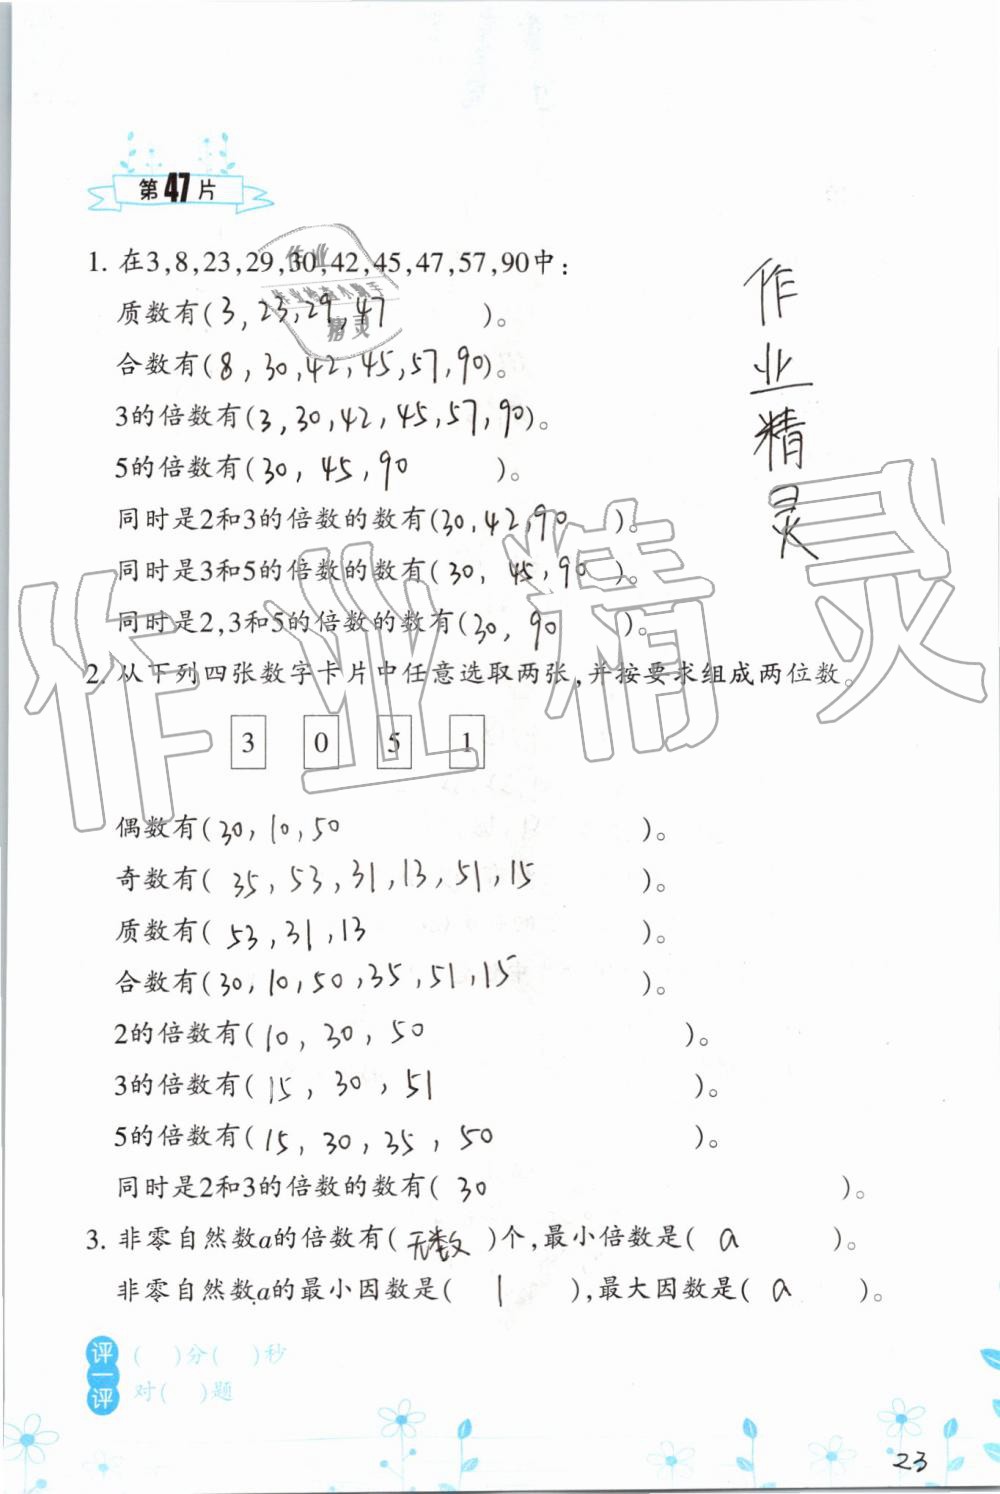 第47片
1. 在3,8,23,29,30,42,45,47,57,90中:
质数有(3,23,29,47)。
合数有(8,30,42,45,57,90)。
3的倍数有(3,30,42,45,57,90)。
5的倍数有(30,45,90)。
同时是2和3的倍数的数有(30,42,90)。
同时是3和5的倍数的数有(30,45,90)。
同时是2,3和5的倍数的数有(30,90)。
2. 从下列四张数字卡片中任意选取两张,并按要求组成两位数。
3 0 5 1
偶数有(30,10,50)。
奇数有(35,53,31,13,51,15)。
质数有(53,31,13)。
合数有(30,10,50,35,51,15)。
2的倍数有(10,30,50)。
3的倍数有(15,30,51)。
5的倍数有(15,30,35,50)。
同时是2和3的倍数的数有(30)。
3. 非零自然数a的倍数有(无数)个,最小倍数是(a)。
非零自然数a的最小因数是(1),最大因数是(a)。
评一评
( )分( )秒
对( )题
23
作业精灵
作业
作业检查小助手
精灵
作业精灵